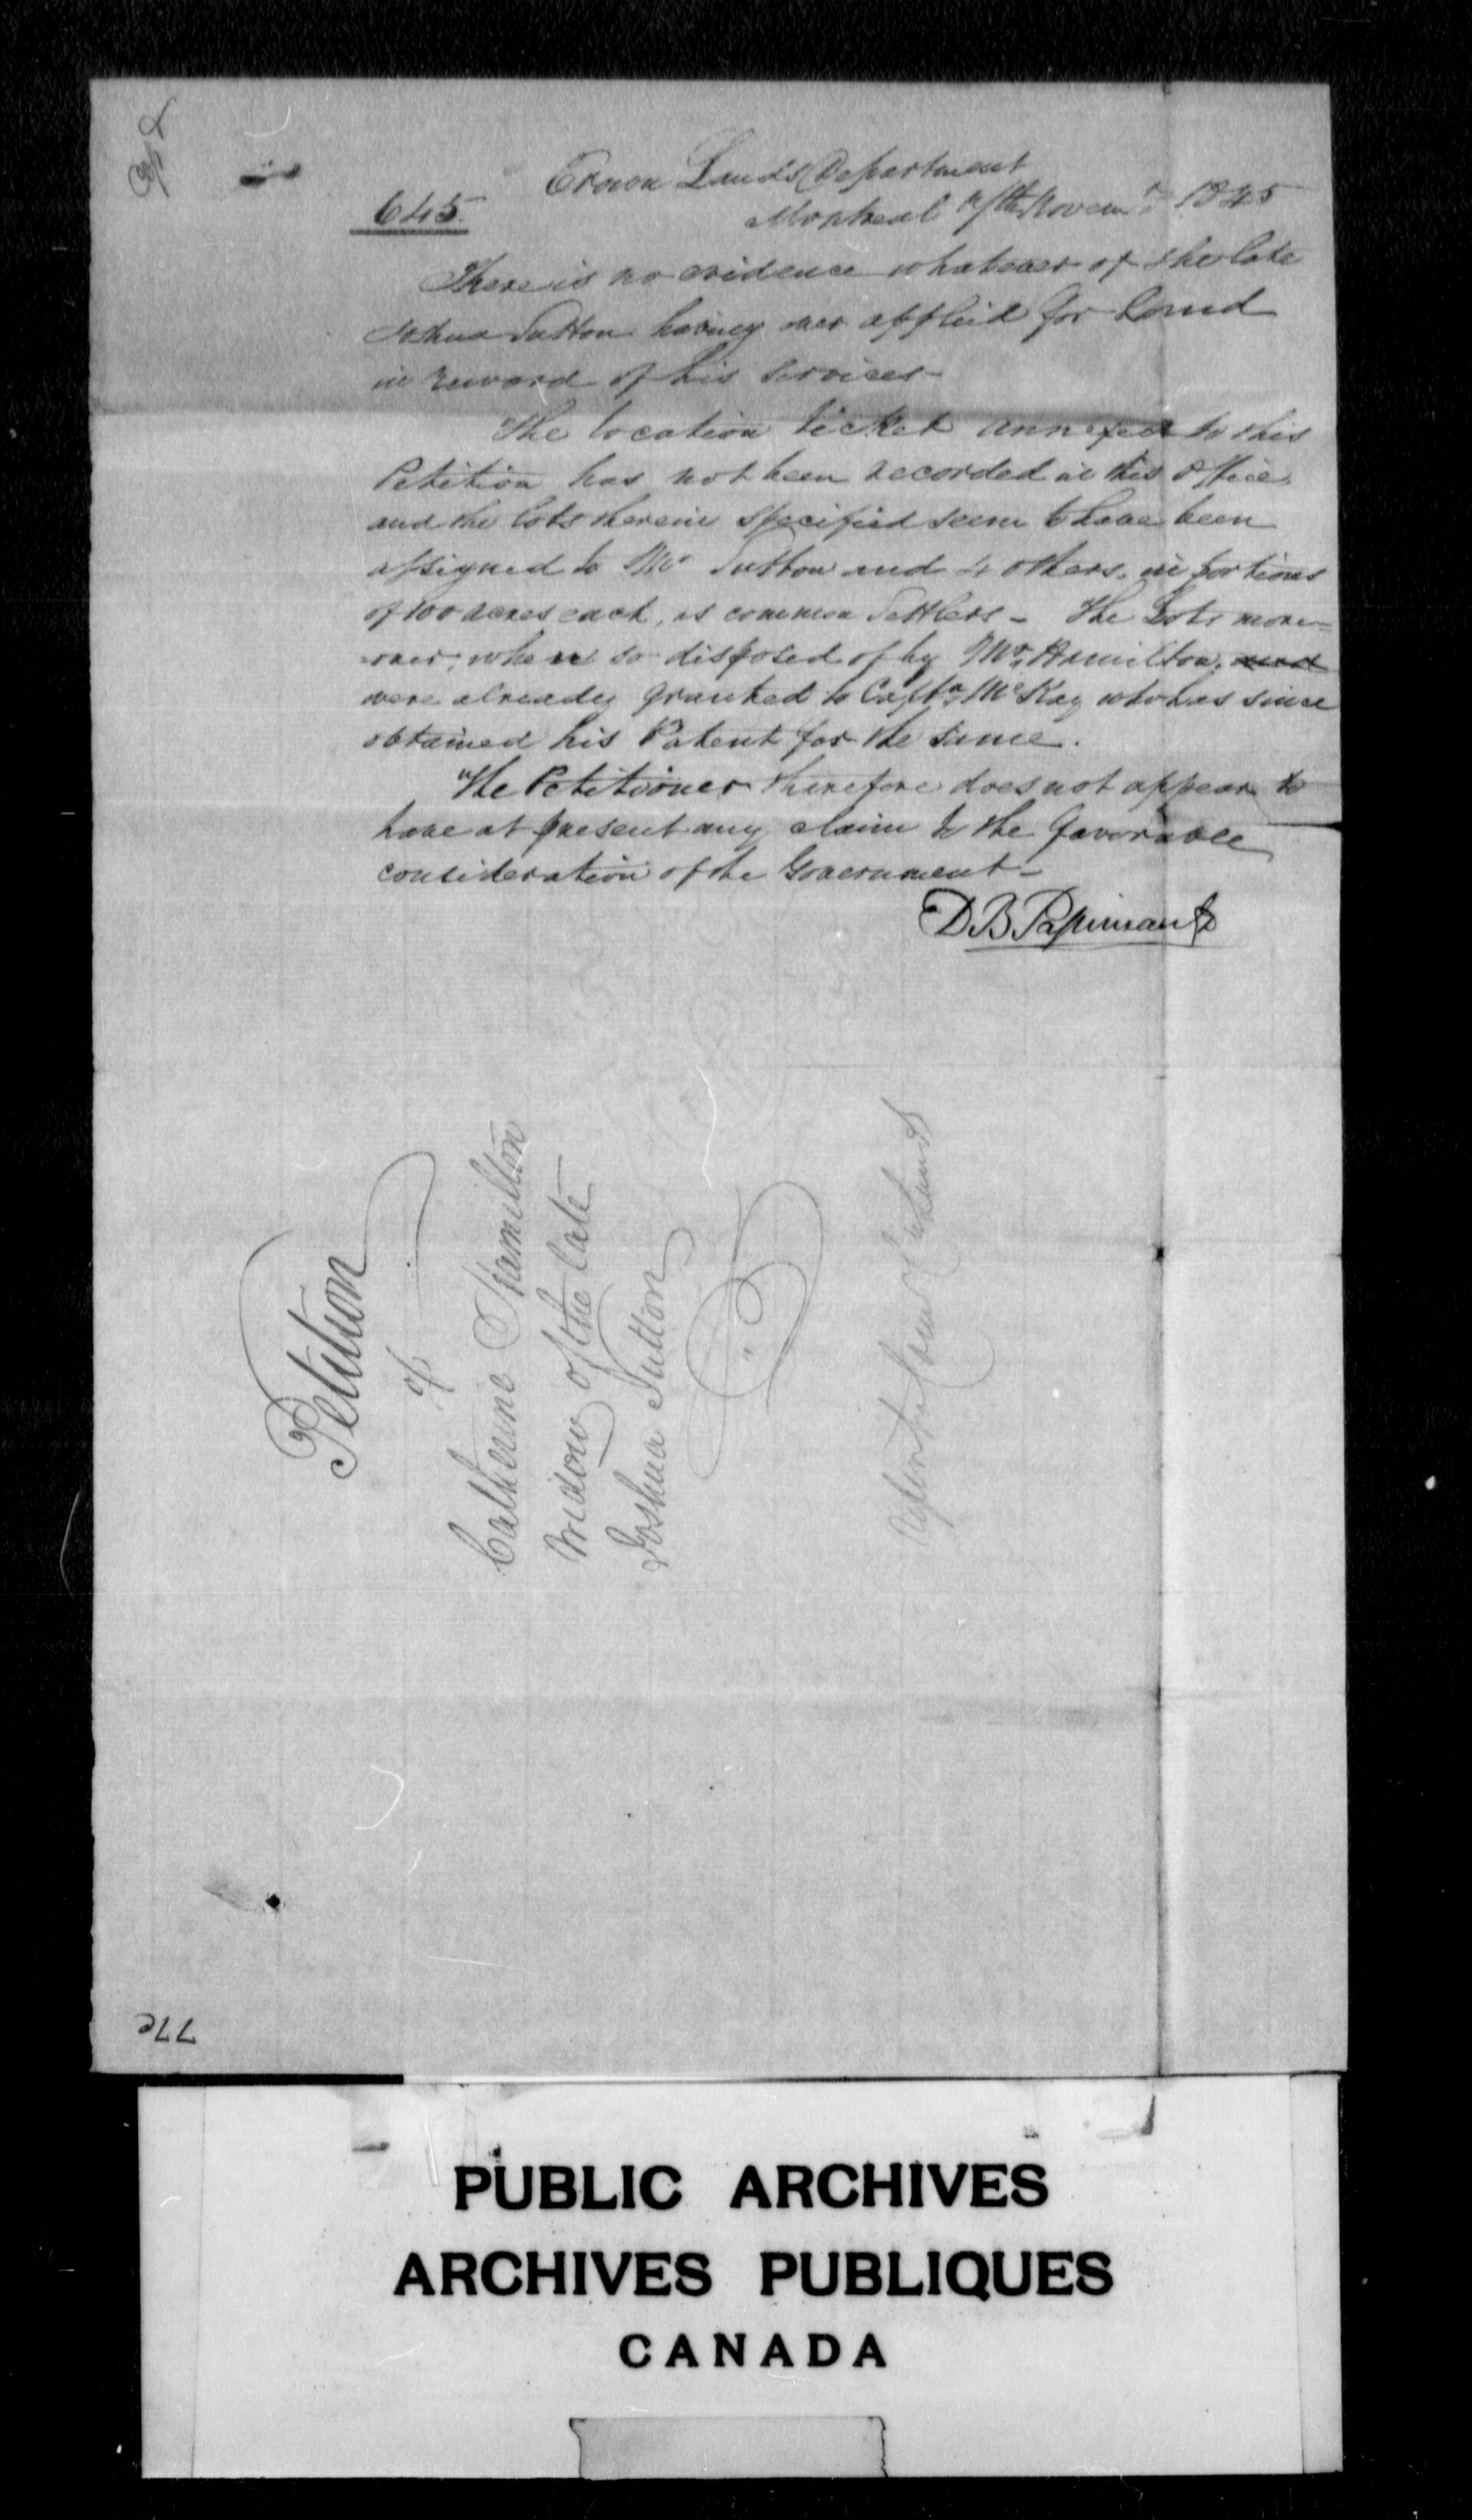 645.
Crown Lands Department
Montreal Novemr. 1845
There is no evidence whatever of the late
Joshua Sutton having ever applied for Land
in reward of his services—
The location ticket annexed to this
Petition has not been recorded in this Office,
and the lots therein specified seem to have been
assigned to Mr Sutton and 4 others, in portions
of 100 acres each, as common Settlers – The Lots more=
over, when so disposed of by Mr. Hamilton,
were already granted to Captn. McKay who has since
obtained his Patent for the same.
The Petitioner therefore does not appear to
have at present any claim to the favorable
consideration of the Government—
D B Papineau
Petition
of
Catherine Hamilton
Widow of the late
Joshua Sutton
77c
PUBLIC ARCHIVES
ARCHIVES PUBLIQUES
CANADA